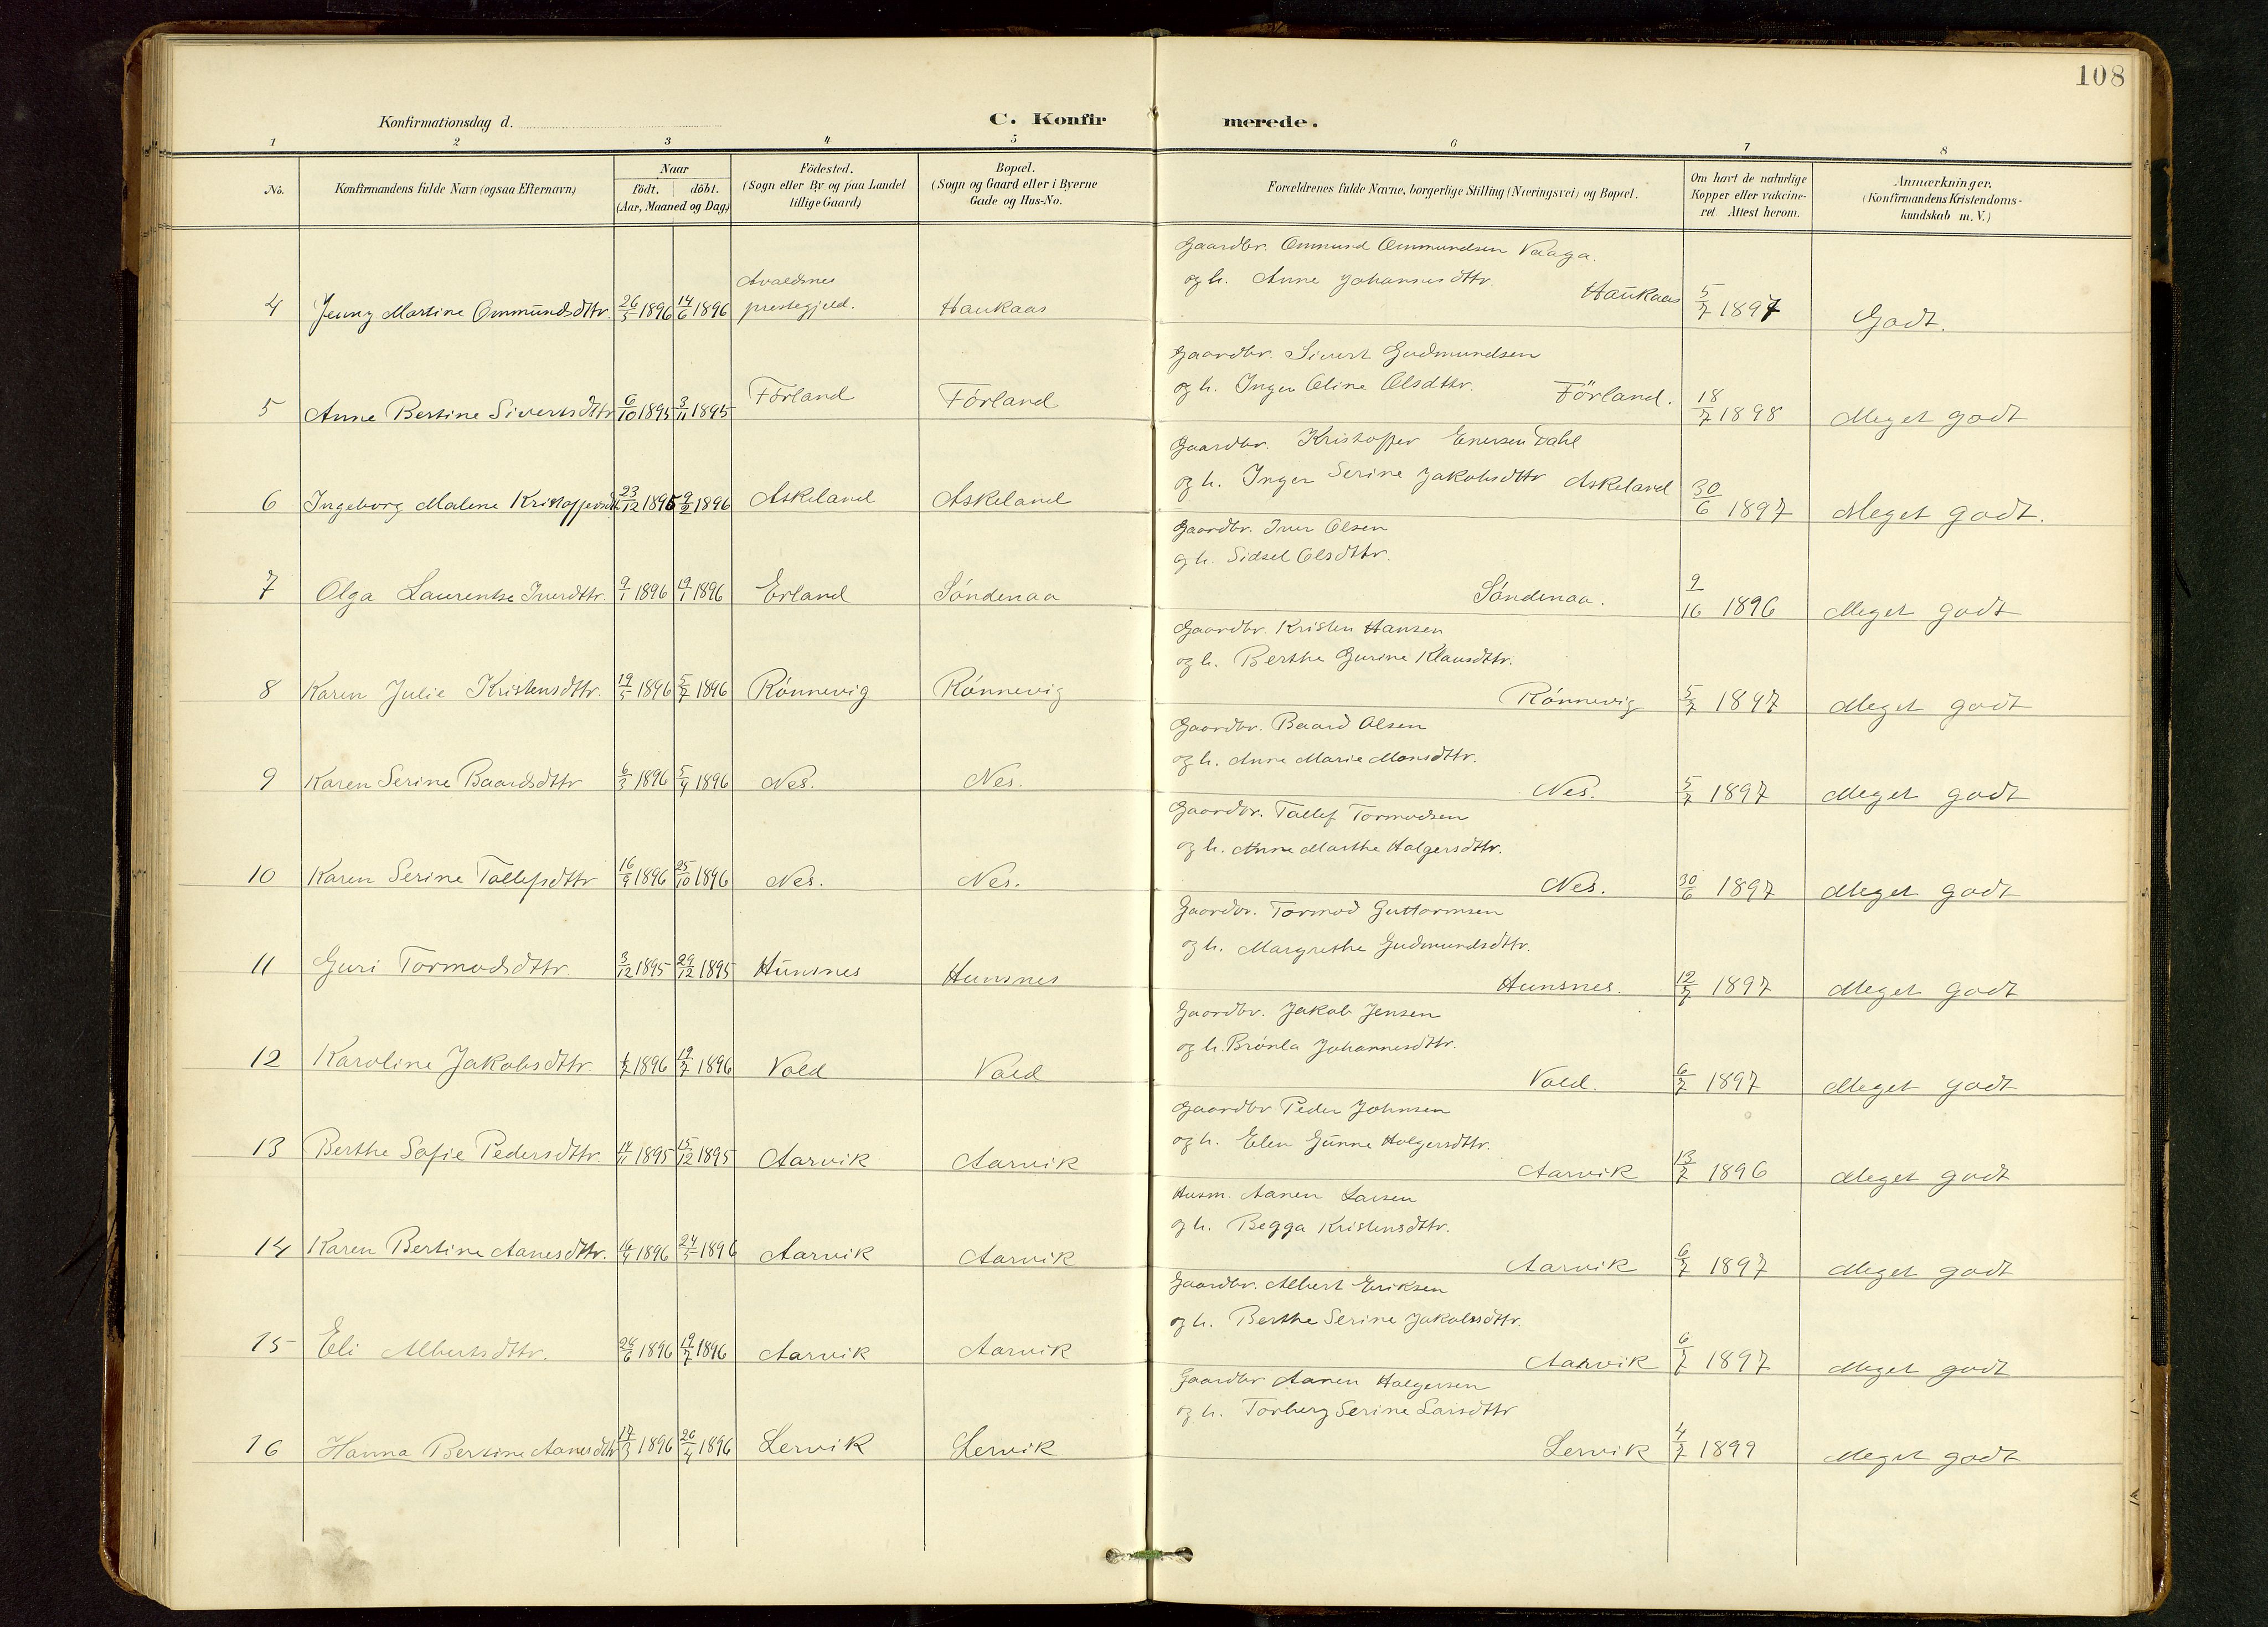 108
Konfirmationsdag d.
C. Konfirmerede.
1 2 3 4 5 6 7 8
No.
Konfirmandens fulde Navn (ogsaa Efternavn)
Naar
födt. döbt.
(Aar, Maaned og Dag.)
Födested.
(Sogn eller By og paa Landet
tillige Gaard)
Bopæl.
(Sogn og Gaard eller i Byerne
Gade og Hus-No.
Forældrenes fulde Navne, borgerlige Stilling (Næringsvei) og Bopæl.
Om havt de naturlige
Kopper eller vakcine-
ret. Attest herom.
Anmærkninger.
(Konfirmandens Kristendoms-
kundskab m. V.)
Gaardbr. Ommund Ommundsen Vaaga.
og h. Anne Johannesdttr.
4 Jenny Martine Ommundsdttr. 26/5 1896 14/6 1896 Avaldsnes prestegjeld. Haukaas Haukaas 5/7 1897 Godt.
Gaardbr. Sivert Gudmundsen
og h. Inger Oline Olsdttr.
5 Anne Bertine Sivertsdttr 6/10 1895 3/11 1895 Förland Förland Förland. 18/7 1898 Meget godt
Gaardbr. Kristoffer Enersen Dahl
og h. Inger Serine Jakobsdttr
6 Ingeborg Malene Kristoffersdtt. 23/12 1895 9/2 1896 Askeland Askeland Askeland 30/6 1897 Meget godt.
Gaardbr. Iver Olsen
og h. Sidsel Olsdttr.
7 Olga Laurentse Iverdttr. 9/1 1896 19/1 1896 Erland Söndenaa Söndenaa. 9/16 1896 Meget godt
Gaardbr. Kristen Hansen
og h. Berthe Gurine Klausdttr.
8 Karen Julie Kristensdttr. 19/5 1896 5/7 1896 Rönnevig Rönnevig Rönnevig 5/7 1897 Meget godt
Gaardbr. Baard Olsen
og h. Anne Marie Monsdttr.
9 Karen Serine Baardsdttr 6/3 1896 5/4 1896 Nes. Nes. Nes. 5/7 1897 Meget godt
Gaardbr. Tallef Tormodsen
og h. Anne Marthe Holgersdttr.
10 Karen Serine Tallefsdttr 16/9 1896 25/10 1896 Nes. Nes. Nes. 30/6 1897 Meget godt
Gaardbr. Tormod Guttormsen
og h. Margrethe Gudmundsdttr.
11 Guri Tormodsdttr. 3/12 1895 29/12 1895 Hunsnes Hunsnes Hunsnes. 12/7 1897 Meget godt
Gaardbr. Jakob Jensen
og h. Brönla Johannesdttr.
12 Karoline Jakobsdttr. 1/7 1896 19/7 1896 Vold Vold Vold. 6/7 1897 Meget godt
Gaardbr Peder Johnsen
og h. Elen Gunne Holgersdttr.
13 Berthe Sofie Pedersdttr. 14/11 1895 15/12 1895 Aarvik Aarvik Aarvik 13/7 1896 Meget godt
Husm. Aanen Larsen
og h. Begga Kristensdttr.
14 Karen Bertine Aanesdttr. 16/4 1896 24/5 1896 Aarvik Aarvik Aarvik 6/7 1897 Meget godt
Gaardbr. Albert Eriksen
og h. Berthe Serine Jakobsdttr.
15 Eli Albertsdttr. 24/6 1896 19/7 1896 Aarvik Aarvik Aarvik 6/7 1897 Meget godt
Gaardbr Aanen Holgersen
og h. Torberg Serine Larsdttr
16 Hanna Bertine Aanesdttr 17/3 1896 26/4 1896 Lervik Lervik Lervik 4/7 1899 Meget godt